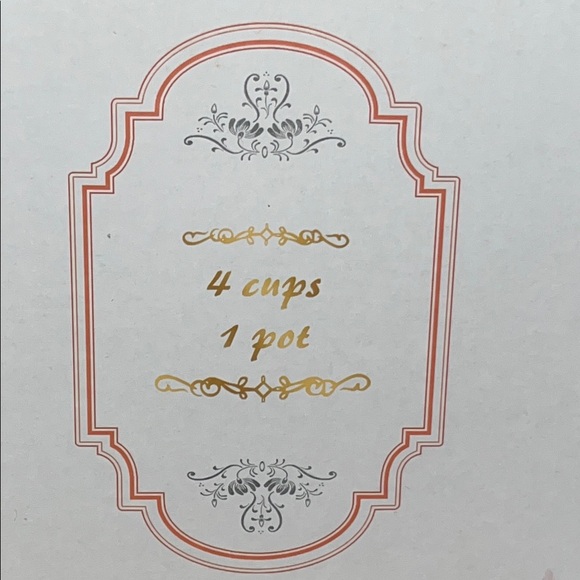 4 cups
1 pot